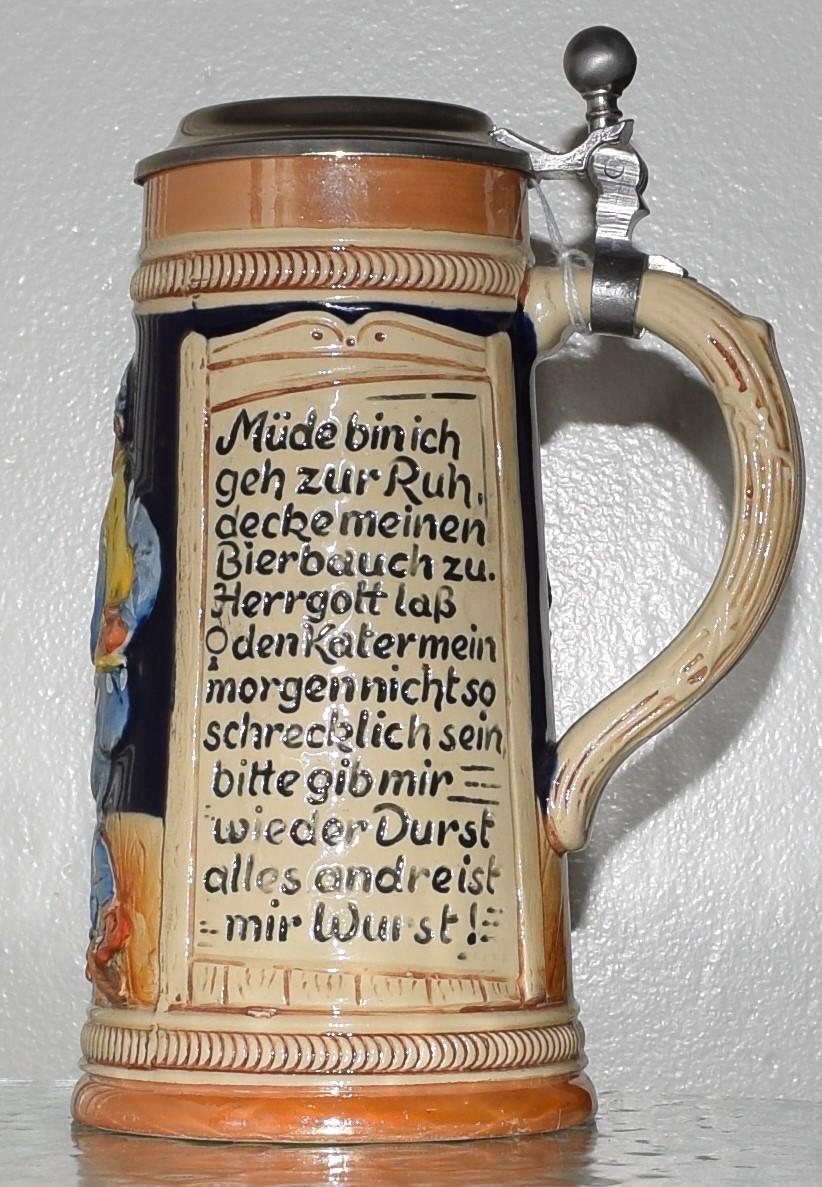 Müde bin ich
geh zur Ruh,
decke meinen
Bierbauch zu.
Herrgott laß
den Kater mein
morgen nicht so
schrecklich sein,
bitte gib mir
wieder Durst
alles andre ist
mir Wurst!